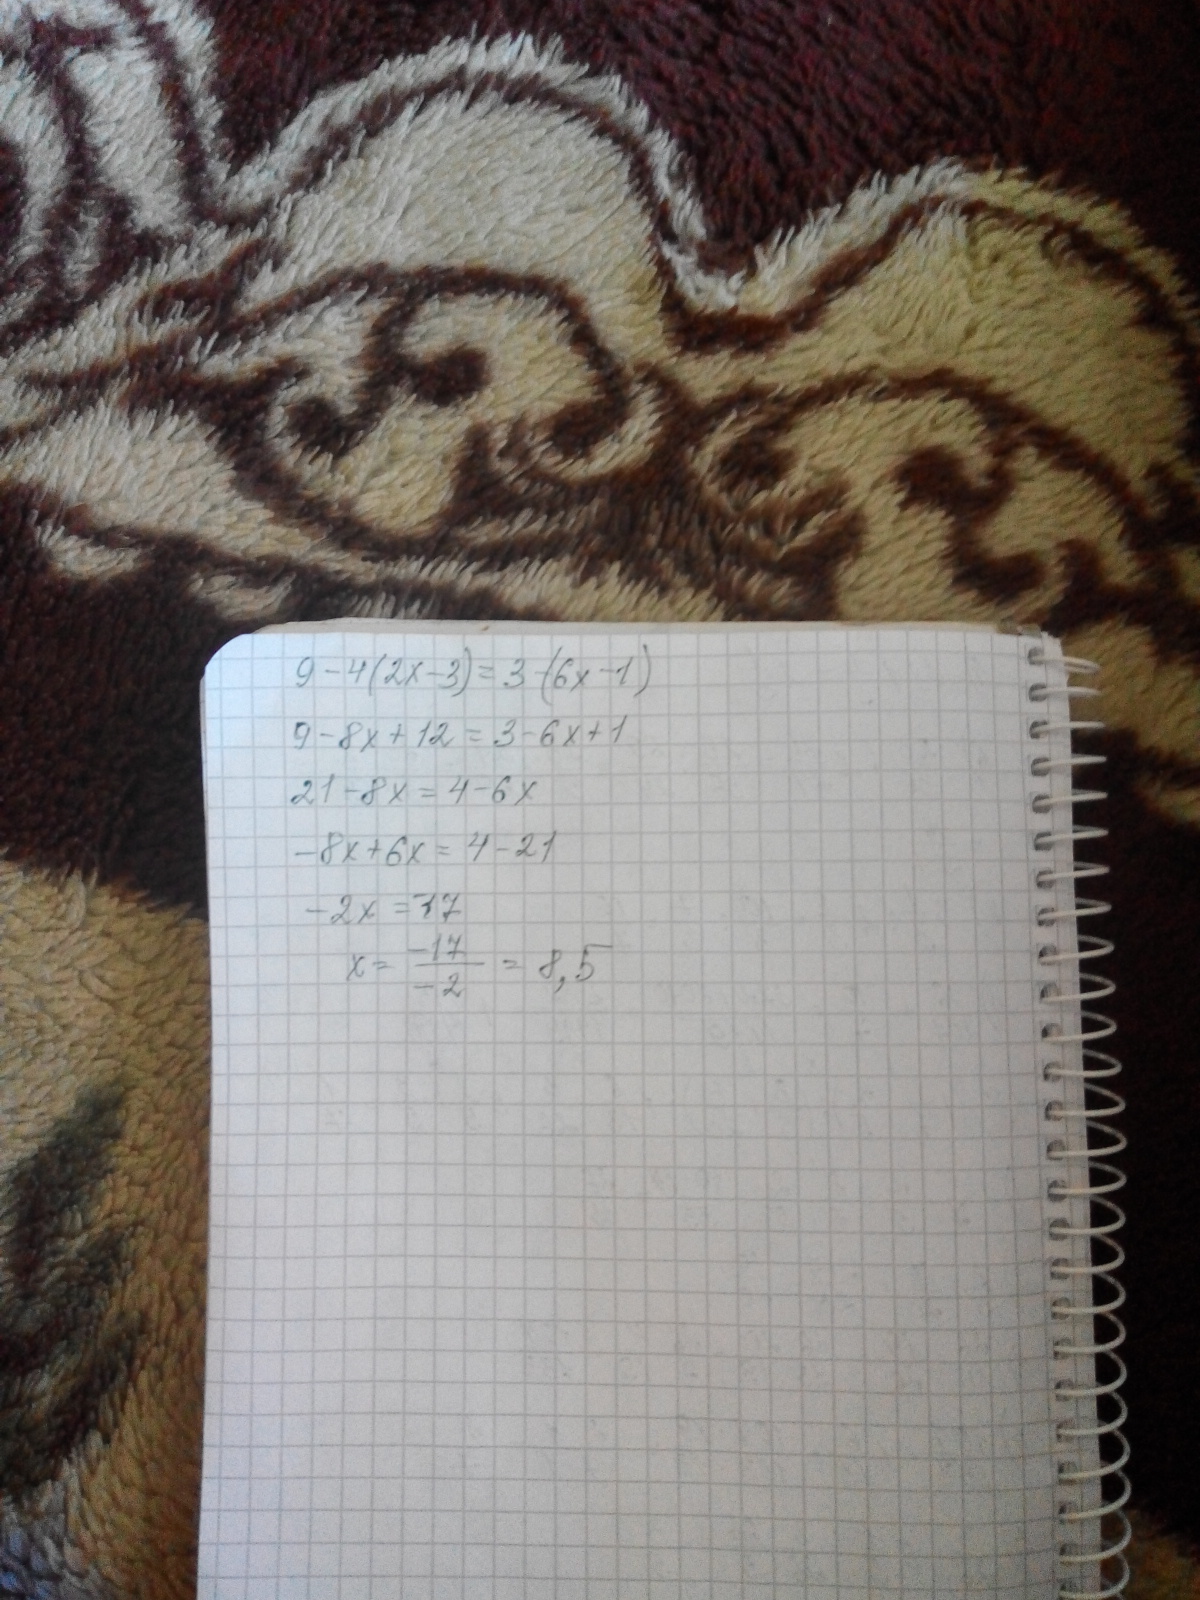 9-4(2x-3)=3-(6x-1)
9-8x+12=3-6x+1
21-8x=4-6x
-8x+6x=4-21
-2x=-17
x=-17/-2=8,5